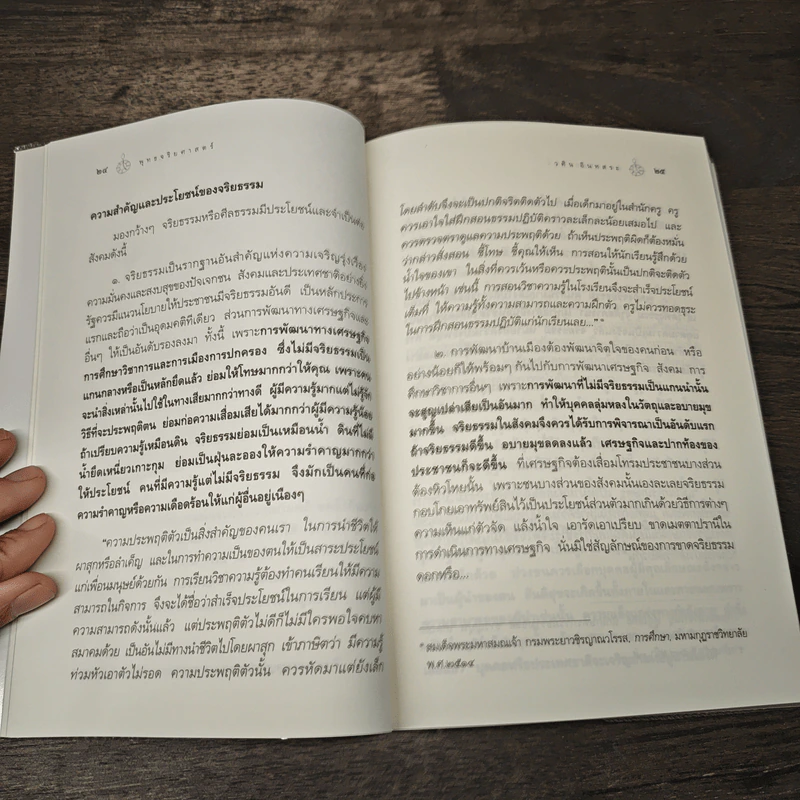 ๒๔ พุทธจริยศาสตร์
ความสำคัญและประโยชน์ของจริยธรรม
มองกว้างๆ จริยธรรมหรือศีลธรรมมีประโยชน์และจำเป็นต่อ
สังคมดังนี้
๑. จริยธรรมเป็นรากฐานอันสำคัญแห่งความเจริญรุ่งเรือง
ความมั่นคงและสงบสุขของปัจเจกชน สังคมและประเทศชาติอย่างยิ่ง
รัฐควรมีแนวนโยบายให้ประชาชนมีจริยธรรมอันดี เป็นหลักประการ
แรกและถือว่าเป็นอุดมคติทีเดียว ส่วนการพัฒนาทางเศรษฐกิจและ
อื่นๆ ให้เป็นอันดับรองลงมา ทั้งนี้ เพราะการพัฒนาทางเศรษฐกิจ
การศึกษาวิชาการและการเมืองการปกครอง ซึ่งไม่มีจริยธรรมเป็น
แกนกลางหรือเป็นหลักยึดแล้ว ย่อมให้โทษมากกว่าให้คุณ เพราะคน
จะนำสิ่งเหล่านั้นไปใช้ในทางเสียมากกว่าทางดี ผู้มีความรู้มากแต่ไม่รู้จัก
วิธีที่จะประพฤติตน ย่อมก่อความเสื่อมเสียได้มากกว่าผู้มีความรู้น้อย
ถ้าเปรียบความรู้เหมือนดิน จริยธรรมย่อมเป็นเหมือนน้ำ ดินที่ไม่มี
น้ำยึดเหนี่ยวเกาะกุม ย่อมเป็นฝุ่นละอองให้ความรำคาญมากกว่า
ให้ประโยชน์ คนที่มีความรู้แต่ไม่มีจริยธรรม จึงมักเป็นคนที่ก่อ
ความรำคาญหรือความเดือดร้อนให้แก่ผู้อื่นอยู่เนืองๆ
"ความประพฤติตัวเป็นสิ่งสำคัญของคนเรา ในการนำชีวิตให้
ผาสุกหรือลำเค็ญ และในการทำความเป็นของตนให้เป็นสาระประโยชน์
แก่เพื่อนมนุษย์ด้วยกัน การเรียนวิชาความรู้ต้องทำคนเรียนให้มีความ
สามารถในกิจการ จึงจะได้ชื่อว่าสำเร็จประโยชน์ในการเรียน แต่ผู้มี
ความสามารถดังนั้นแล้ว แต่ประพฤติตัวไม่ดีก็ไม่มีใครพอใจคบหา
สมาคมด้วย เป็นอันไม่มีทางนำชีวิตไปโดยผาสุก เข้าภาษิตว่า มีความรู้
ท่วมหัวเอาตัวไม่รอด ความประพฤติตัวนั้น ควรหัดมาแต่ยังเล็ก
วศิน อินทสระ ๒๕
โดยลำดับจึงจะเป็นปกติจริตติดตัวไป เมื่อเด็กมาอยู่ในสำนักครู ครู
ควรเอาใจใส่ฝึกสอนธรรมปฏิบัติคราวละเล็กละน้อยเสมอไป และ
ควรตรวจตราดูแลความประพฤติด้วย ถ้าเห็นประพฤติผิดก็ต้องหมั่น
ว่ากล่าวสั่งสอน ชี้โทษ ชี้คุณให้เห็น การสอนให้นักเรียนรู้สึกด้วย
น้ำใจของเขา ในสิ่งที่ควรเว้นหรือควรประพฤตินั้นเป็นปกติจะติดตัว
ไปข้างหน้า เช่นนี้ การสอนวิชาความรู้ในโรงเรียนจึงจะสำเร็จประโยชน์
เต็มที่ ให้ความรู้ทั้งความสามารถและความฝึกตัว ครูไม่ควรทอดธุระ
ในการฝึกสอนธรรมปฏิบัติแก่นักเรียนเลย..." *
๒. การพัฒนาบ้านเมืองต้องพัฒนาจิตใจของคนก่อน หรือ
อย่างน้อยก็ให้พร้อมๆ กันไปกับการพัฒนาเศรษฐกิจ สังคม การ
ศึกษาวิชาการอื่นๆ เพราะการพัฒนาที่ไม่มีจริยธรรมเป็นแกนนำนั้น
จะสูญเปล่าเสียเป็นอันมาก ทำให้บุคคลลุ่มหลงในวัตถุและอบายมุข
มากขึ้น จริยธรรมในสังคมจึงควรได้รับการพิจารณาเป็นอันดับแรก
ถ้าจริยธรรมดีขึ้น อบายมุขลดลงแล้ว เศรษฐกิจและปากท้องของ
ประชาชนก็จะดีขึ้น ที่เศรษฐกิจต้องเสื่อมโทรมประชาชนบางส่วน
ต้องหิวโหยนั้น เพราะชนบางส่วนของสังคมนั้นเองละเลยจริยธรรม
กอบโกยเอาทรัพย์สินไว้เป็นประโยชน์ส่วนตัวมากเกินด้วยวิธีการต่างๆ
ความเห็นแก่ตัวจัด แล้งน้ำใจ เอารัดเอาเปรียบ ขาดเมตตาปรานีใน
การดำเนินการทางเศรษฐกิจ นั่นมิใช่สัญลักษณ์ของการขาดจริยธรรม
ดอกหรือ...
* สมเด็จพระมหาสมณเจ้า กรมพระยาวชิรญาณวโรรส, การศึกษา, มหามกุฏราชวิทยาลัย
พ.ศ.๒๕๑๔